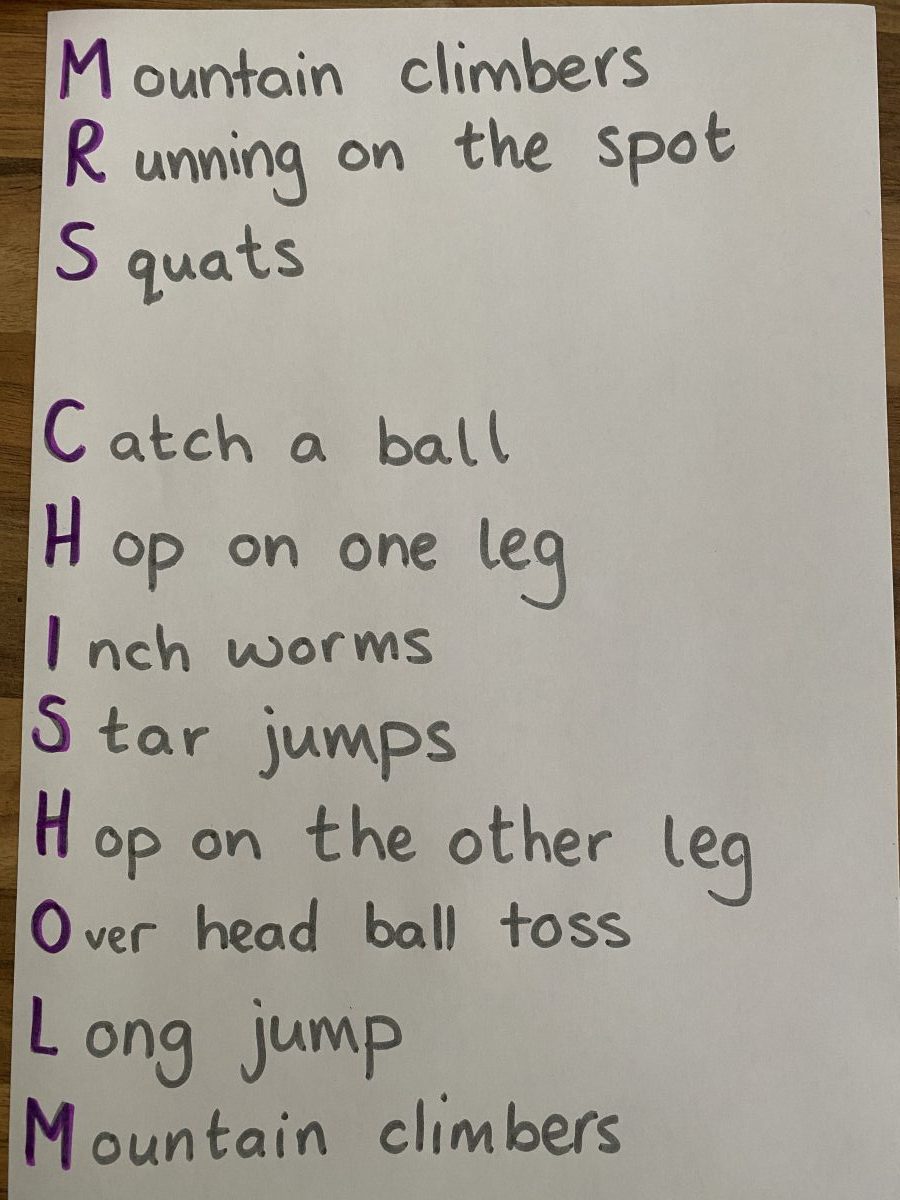 Mountain climbers
Running on the spot
Squats
Catch a ball
Hop on one leg
Inch worms
Star jumps
Hop on the other leg
Over head ball toss
Long jump
Mountain climbers